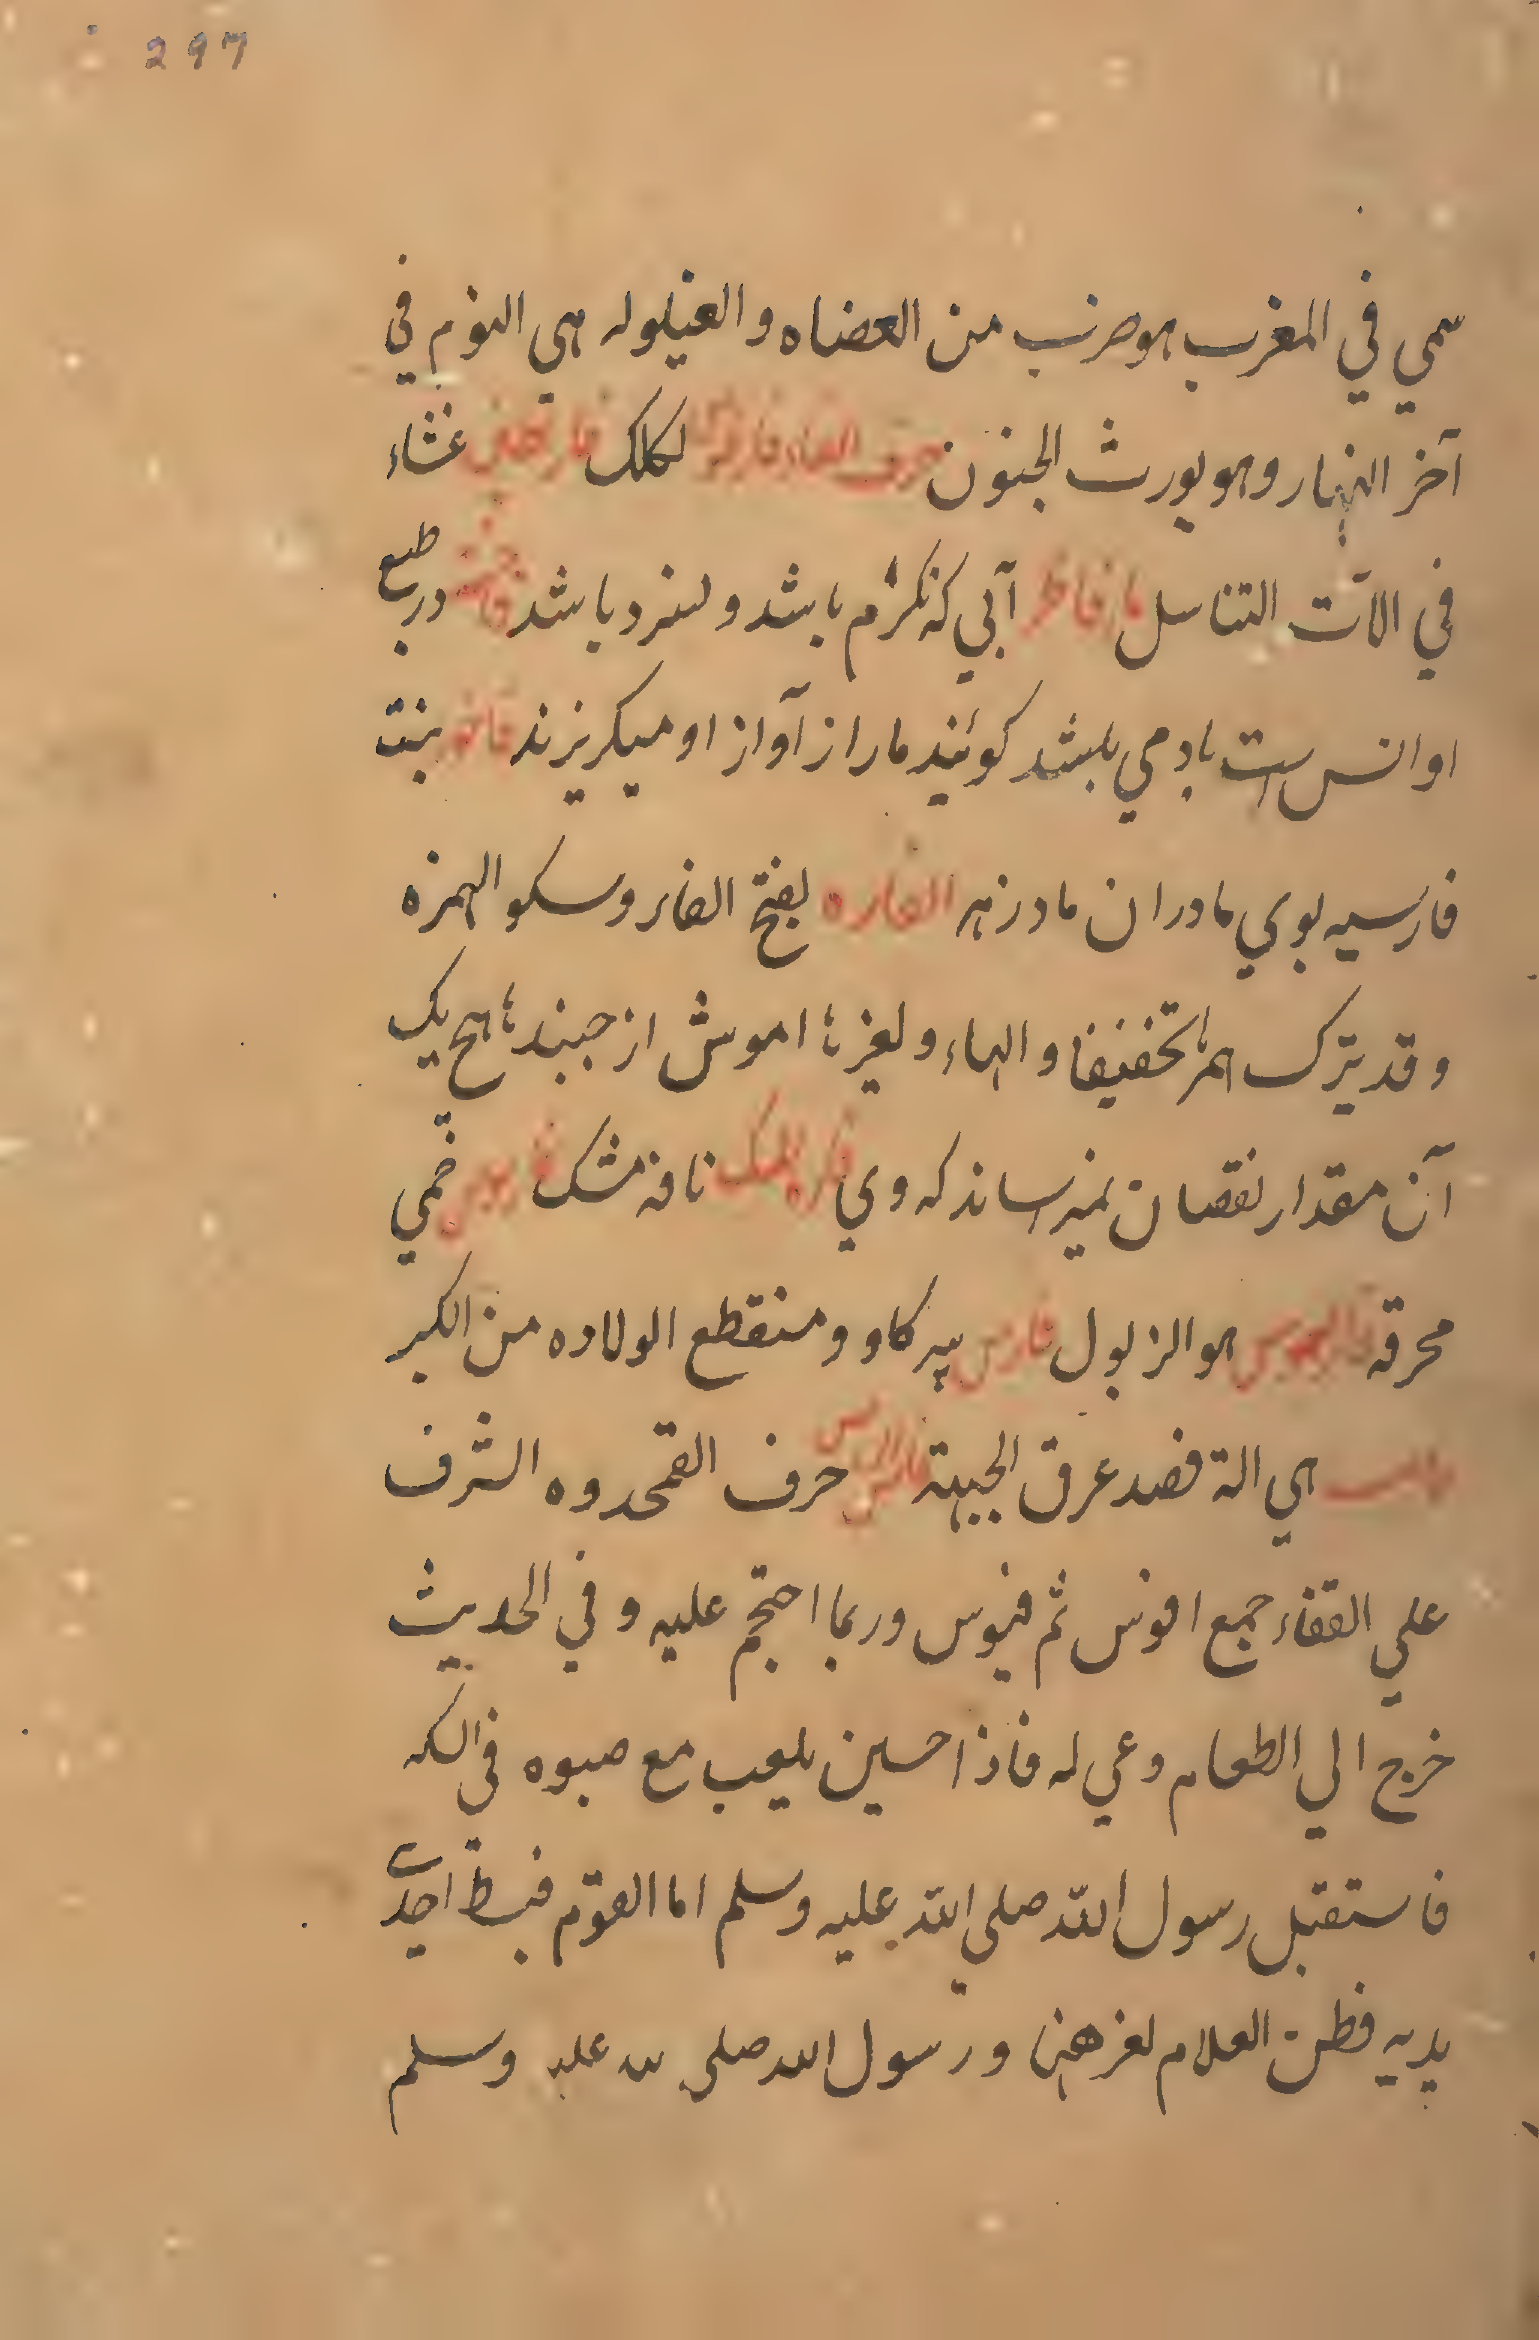 297
سمي في المغرب هو ضرب من العضاه و الغيلوله هي النوم في
آخر النهار وهو يورث الجنون حرف الفاء لكلك غشاء
في الآت التناسل فا فاطر آبي كه نكرم باشد و لسرد باشد فاخته در طبع
او انس است بادمي بلشد كوئيد مار از آواز او ميكريزند بنت
فارسيه بوي مادران مادرزهر الفاره بفتح الفاء و سكو الهمزه
و قد يترك همزها تخفيفا و الهاء و لغزها اموش از جبندها هيچ يك
آن مقدار نقصان نميرساند كه وي فارة المسك نافه مشك حمي
محرقه هو الزبول فارس پير كاو و منقطع الولاده من الكبر
هي الة فصد عرق الجبهة فاس الراس حرف القمحدوه الشرف
علي القفاء جمع افوس ثم فيوس وربما احتجم عليه و في الحديث
خرج الي الطعام دعي له فاذا حسين يلعب مع صبوه في السكه
فاستقبل رسول الله صلي الله عليه و سلم اما القوم فبسط احدي
يديه فطن الغلام لغرهنا و رسول الله صلي الله عليه وسلم